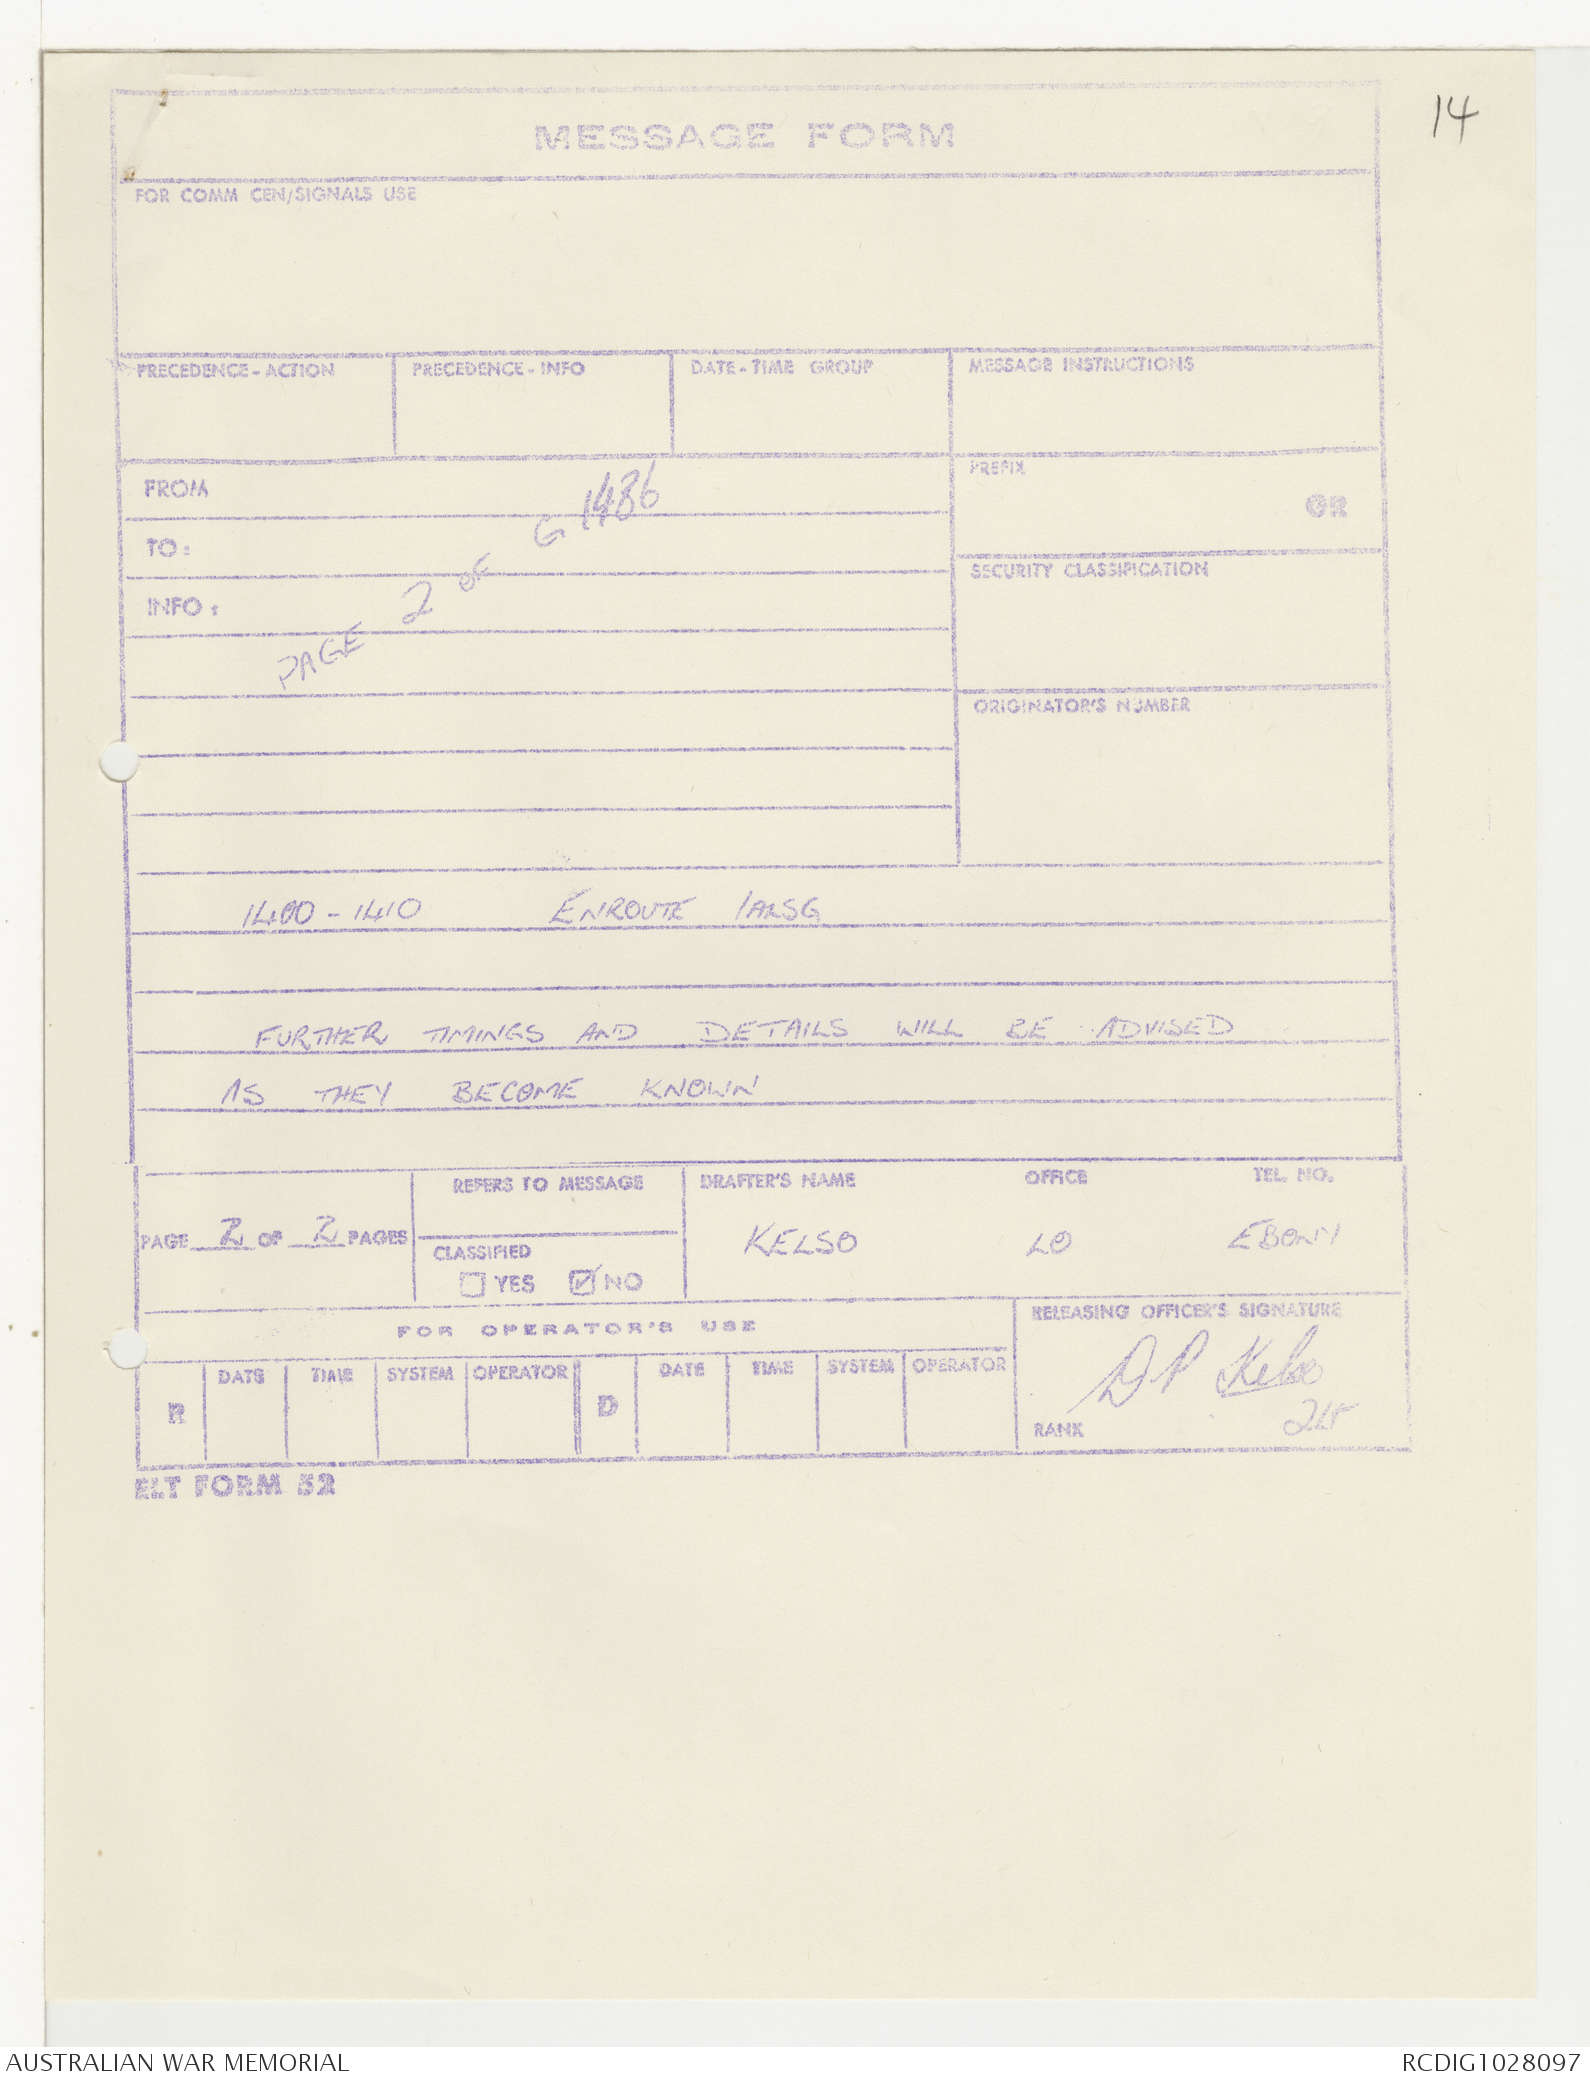 14
MESSAGE FORM
FOR COMM CEN/SIGNALS USE
PRECEDENCE - ACTION
PRECEDENCE - INFO
DATE - TIME GROUP
MESSAGE INSTRUCTIONS
FROM
PREFIX
GR
TO:
INFO:
PAGE 2 OF G 1486
SECURITY CLASSIFICATION
ORIGINATOR'S NUMBER
1400 - 1410 ENROUTE 1ALSG
FURTHER TIMINGS AND DETAILS WILL BE ADVISED
AS THEY BECOME KNOWN
PAGE 2 OF 2 PAGES
REFERS TO MESSAGE
CLASSIFIED
YES NO
DRAFTER'S NAME OFFICE TEL. NO.
KELSO LO EBONY
FOR OPERATOR'S USE
RELEASING OFFICER'S SIGNATURE
DP Kelso
RANK 2LT
R DATE TIME SYSTEM OPERATOR D DATE TIME SYSTEM OPERATOR
ELT FORM 52
AUSTRALIAN WAR MEMORIAL RCDIG1028097